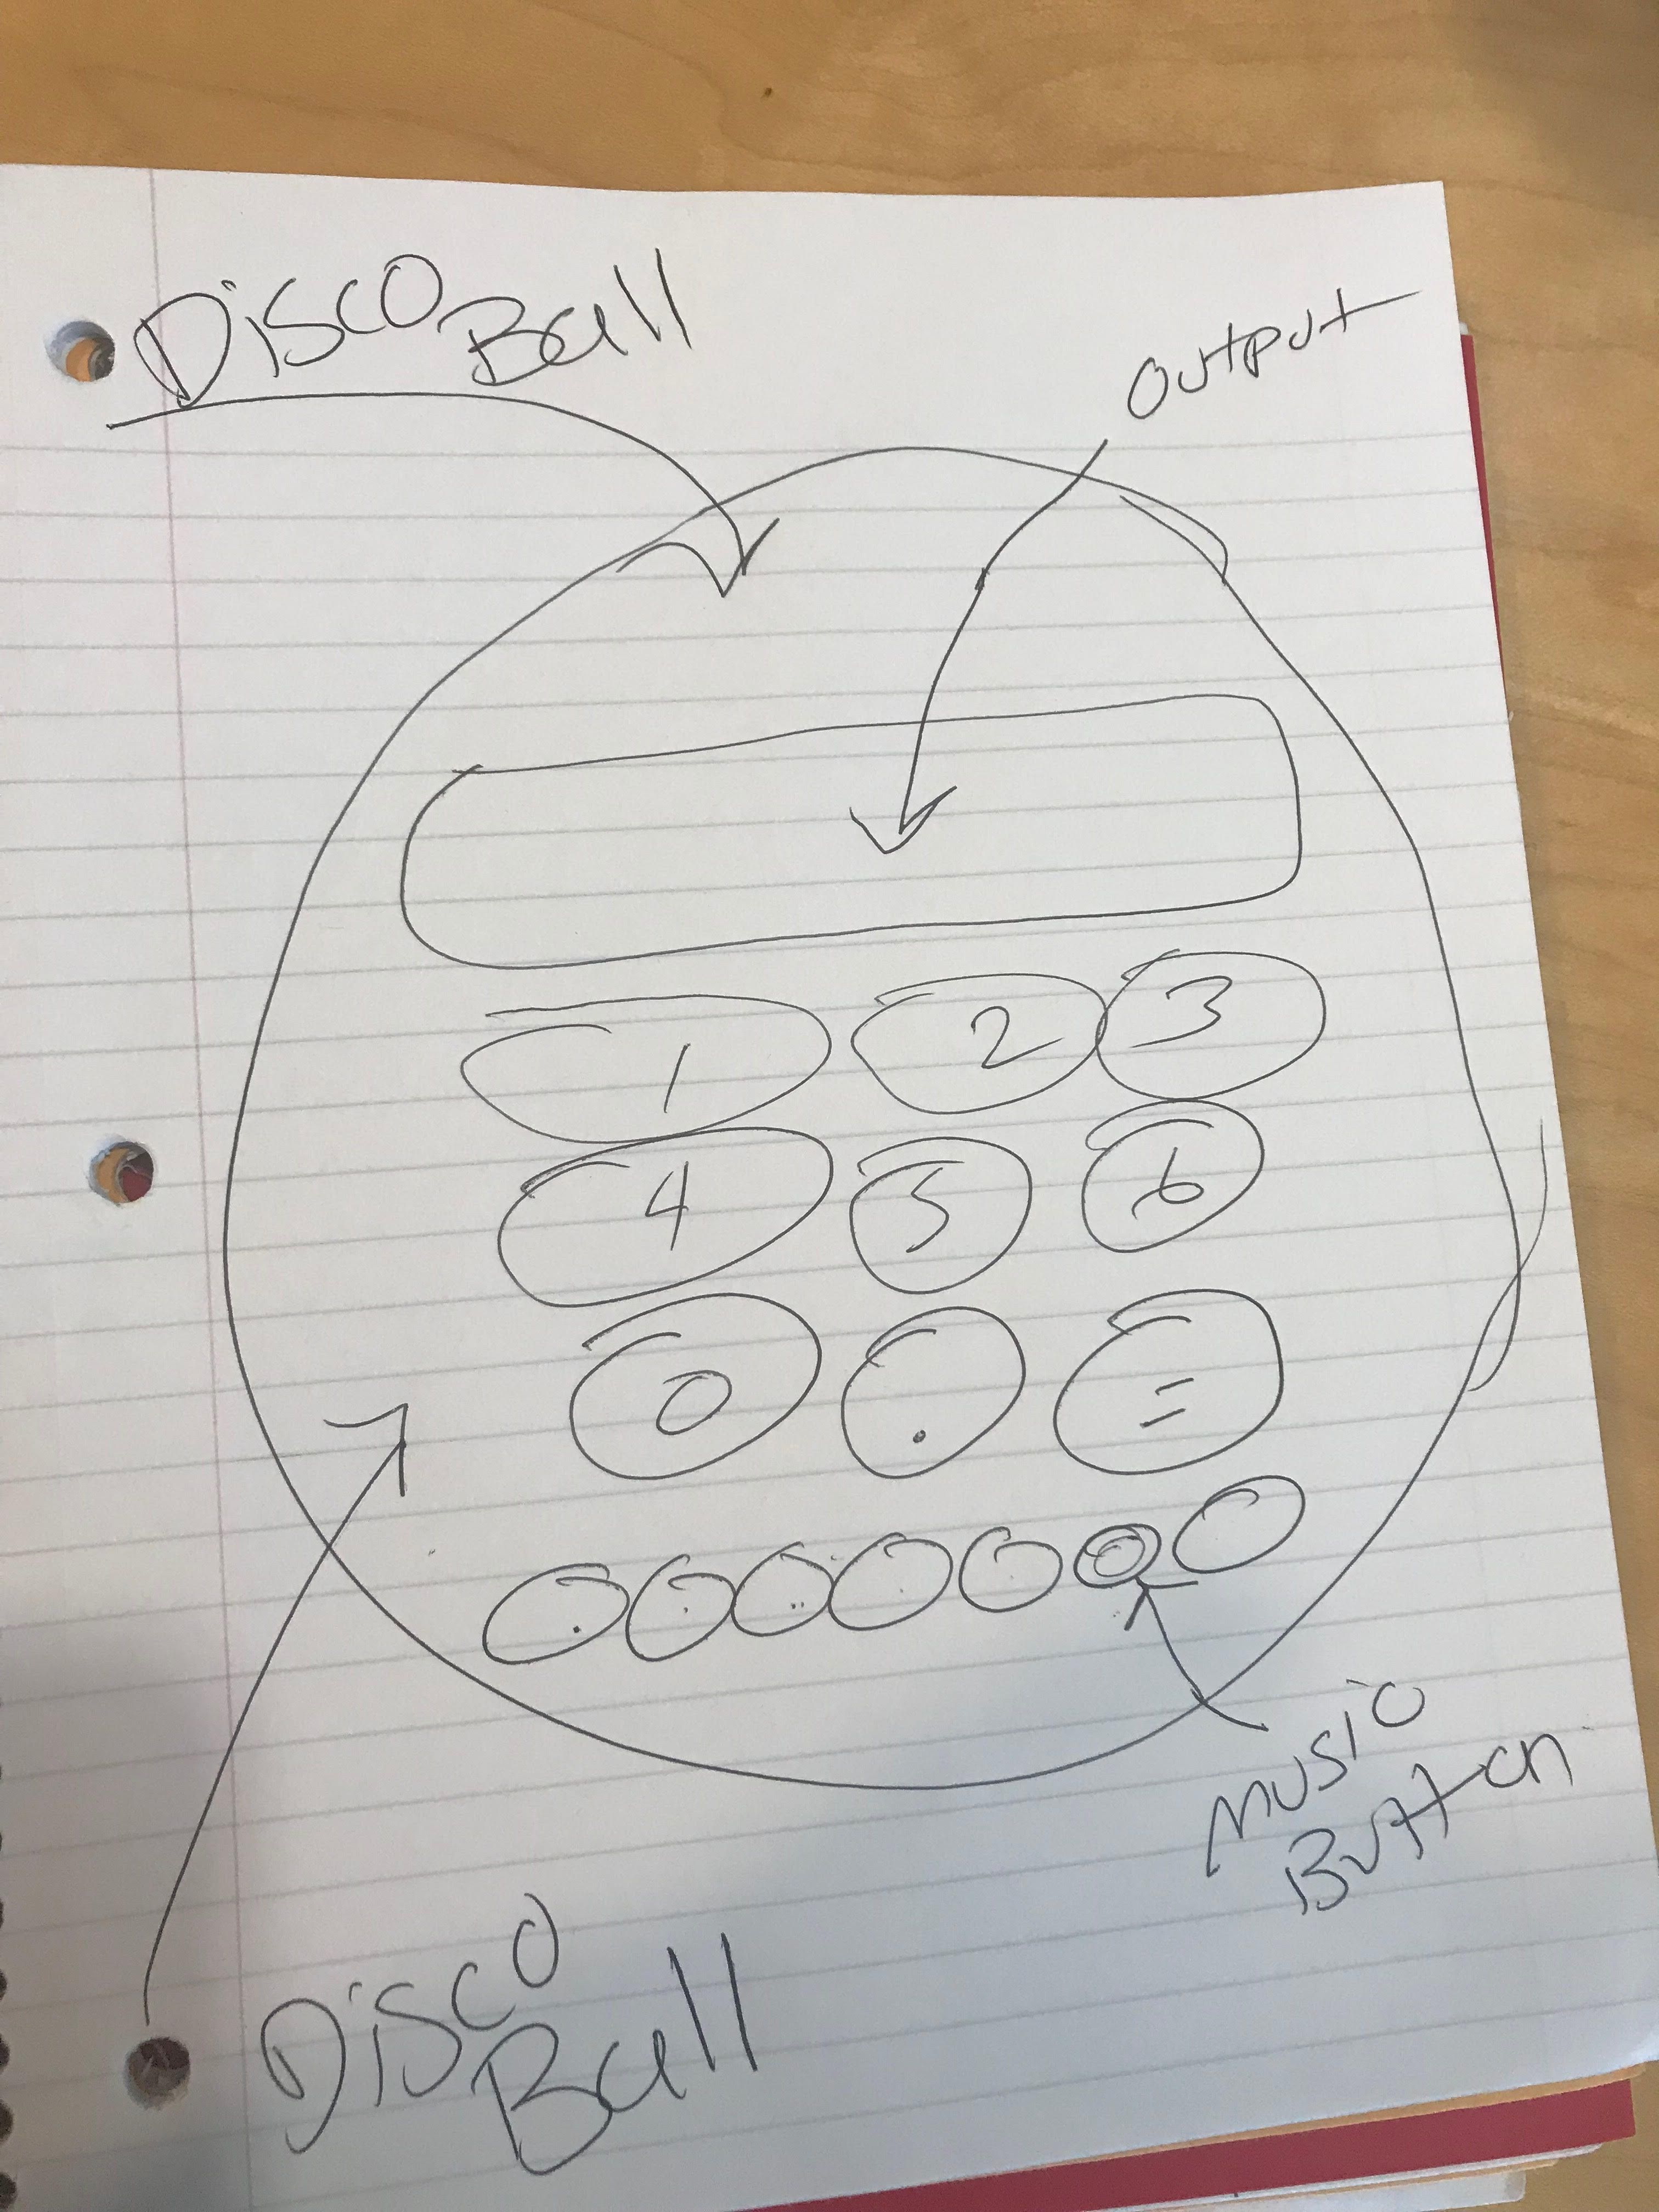 Disco Ball
Output
1 2 3
4 5 6
0 . =
Music
Button
Disco
Ball